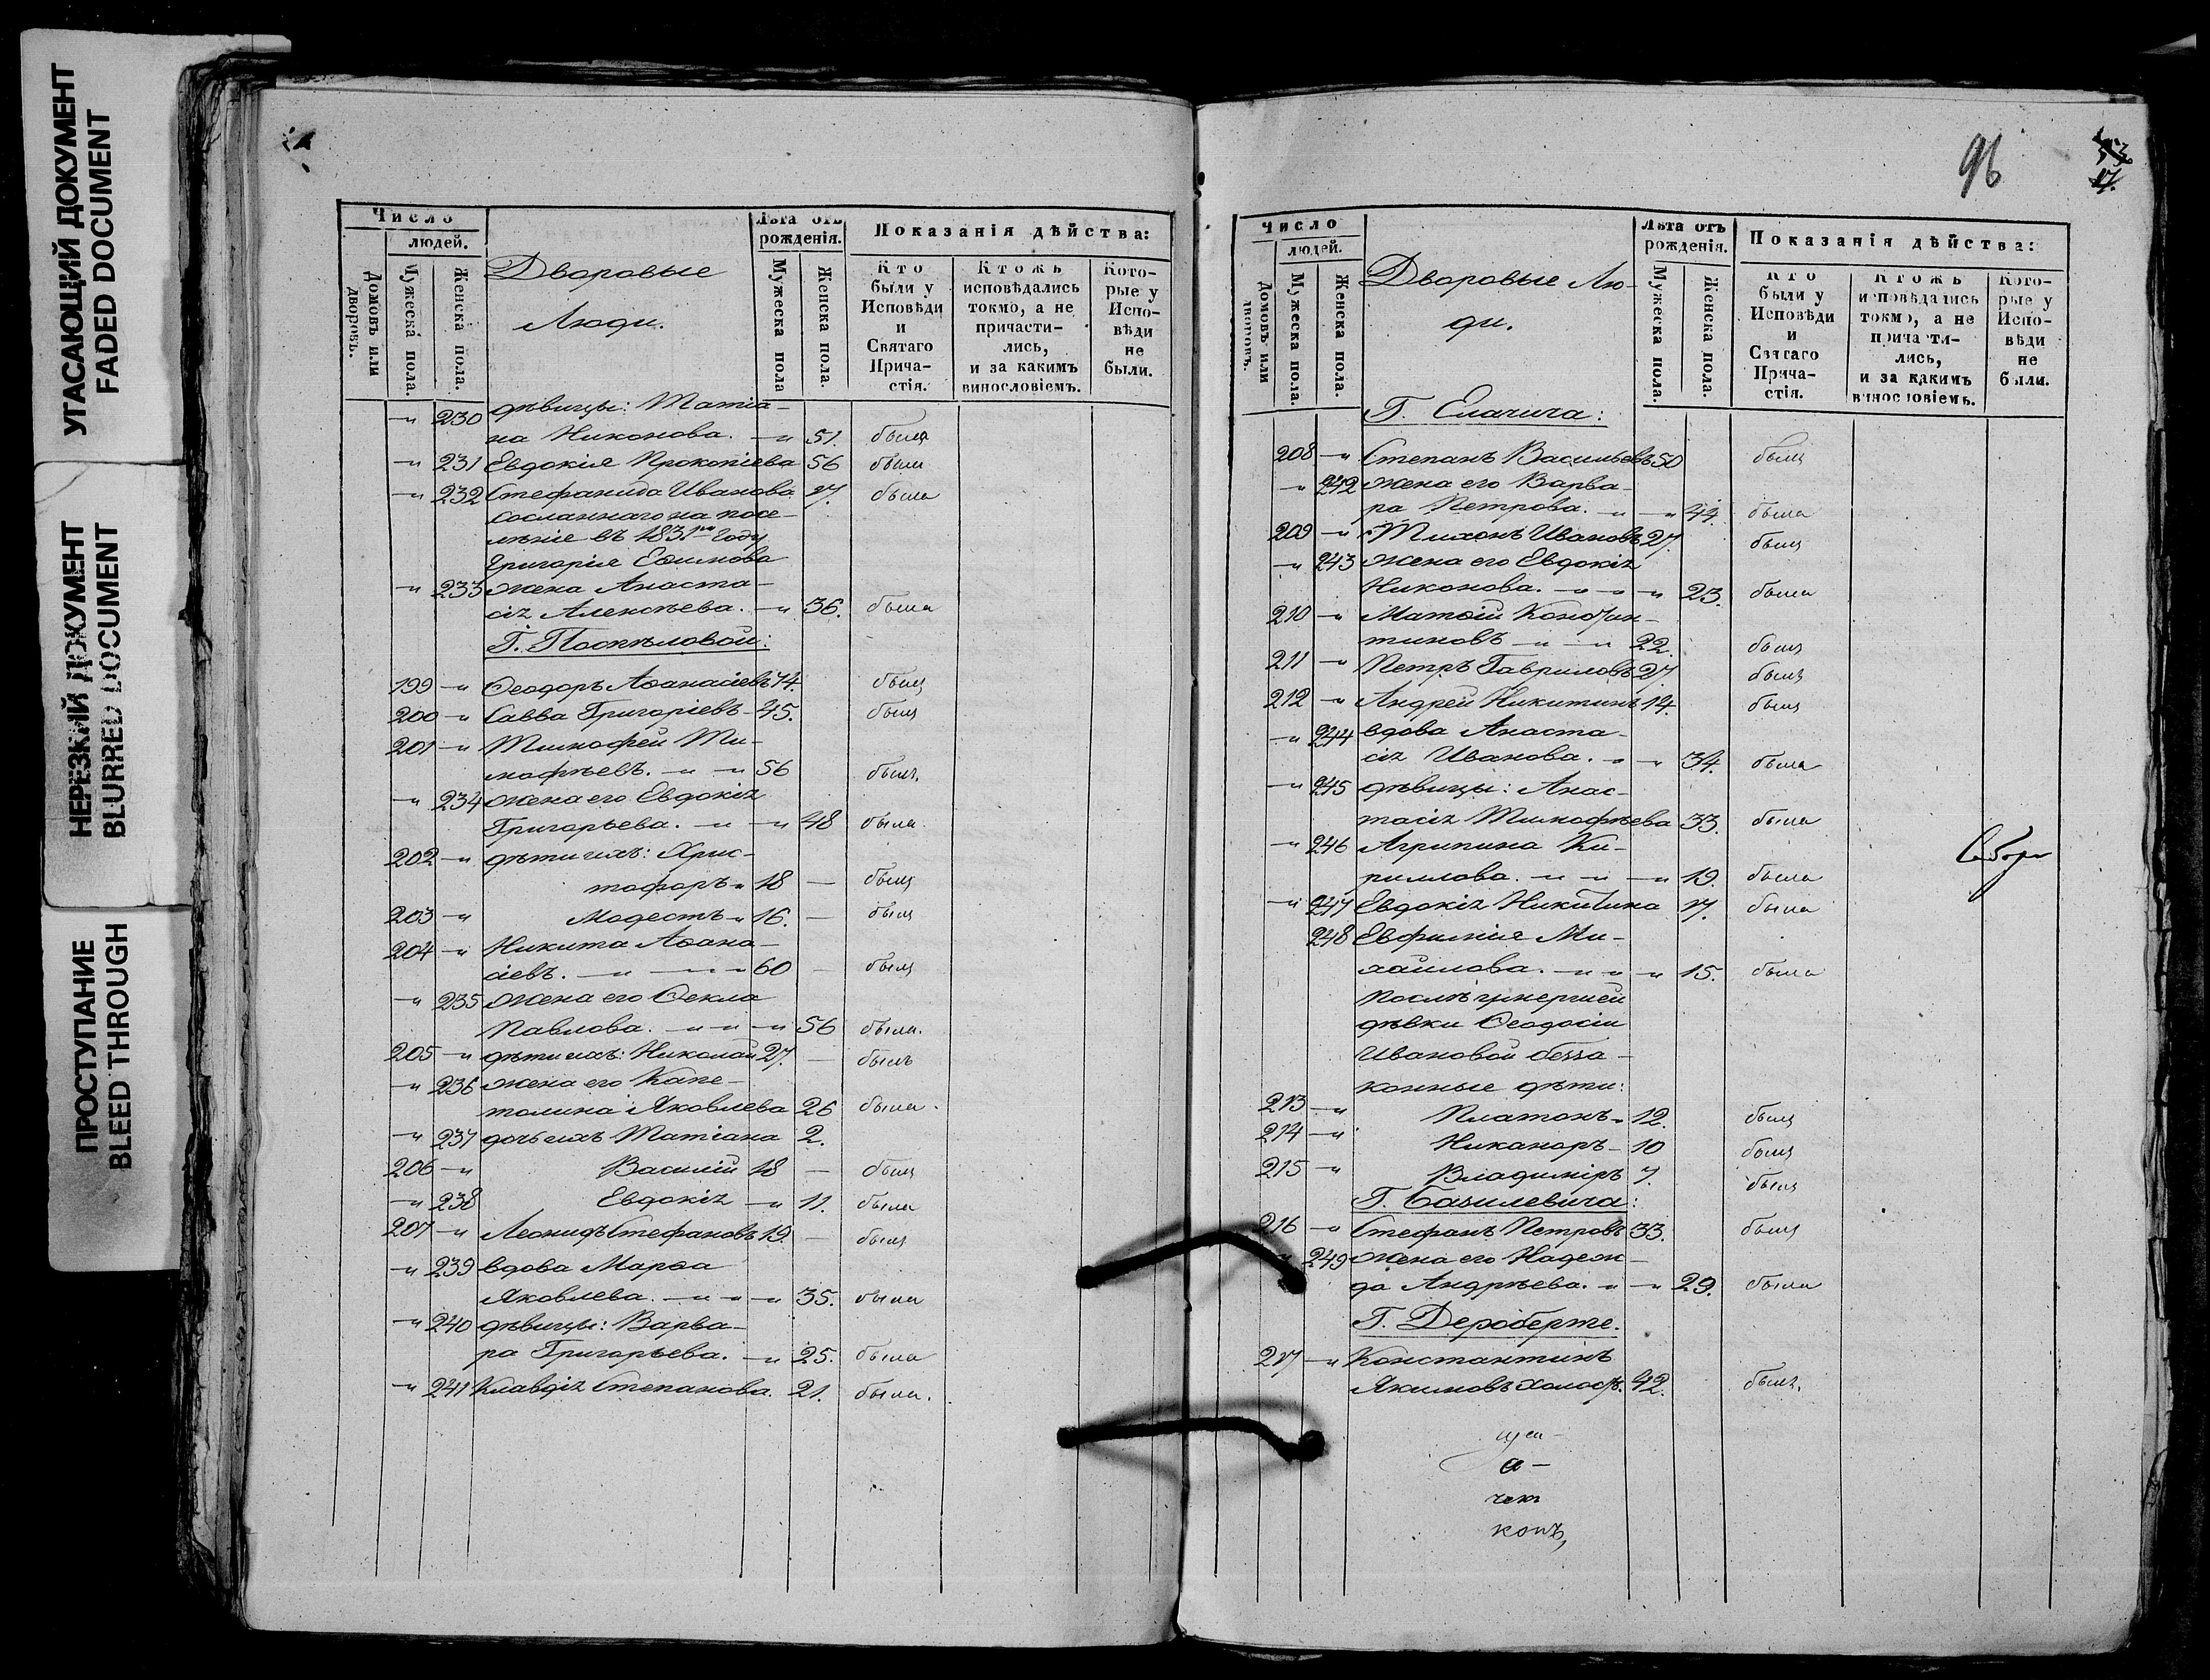 УГАСАЮЩИЙ ДОКУМЕНТ
FADED DOCUMENT
НЕРЕЗКИЙ ДОКУМЕНТ
BLURRED DOCUMENT
ПРОСТУПАНИЕ
BLEED THROUGH
Число
людей.
Домовъ или дворовъ.
Мужеска пола.
Женска пола.
Дворовые
Люди.
Лѣта отъ
рожденія.
Мужеска пола
Женска пола.
Показанія дѣйства:
Кто
были у
Исповѣди
и
Святаго
Прича-
стія.
Ктожъ
исповѣдались
токмо, а не
причасти-
лись,
и за какимъ
винословіемъ.
Кото-
рые у
Испо-
вѣди
не
были.
" 230 дѣвицы: Татіа-
на Никонова. " 51. была
" 231 Евдокія Прокопіева 56 была
" 232 Стефанида Иванова 17. была
сосланнаго на посе-
леніе въ 1831мъ году
Григорія Ефимова
" 233 жена Анаста-
сія Алексѣева. " 36. была
Г. Поспѣловой:
199 " Ѳеодоръ Аѳанасіевъ 74. былъ
200 " Савва Григоріевъ 45. былъ
201 " Тимофей Ти-
мофѣевъ. " " 56 былъ.
" 234 жена его Евдокія
Григорьева. " " 48 была.
202 " дѣти ихъ: Хрис-
тофоръ " 18 — былъ
203 " Модестъ " 16. — былъ
204 " Никита Аѳана-
сіевъ. " " " 60 — былъ
" 235 жена его Ѳекла
Павлова. " " " 56 была.
205 " дѣти ихъ: Николай 27. — былъ
" 236 жена его Капе-
толина Яковлева 26 была.
" 237 дочь ихъ Татіана 2.
206 " Василій 18 — былъ
" 238 Евдокія " 11. была
207 " Леонидъ Стефановъ 19. — былъ
" 239 вдова Марѳа
Яковлева. " " " 35. была
" 240 дѣвицы: Варва-
ра Григорьева. " 25. была
" 241 Клавдія Степанова. 21. была.
96
Число
людей.
Домовъ или дворовъ.
Мужеска пола.
Женска пола.
Дворовые Лю-
ди.
Лѣта отъ
рожденія.
Мужеска пола.
Женска пола.
Показанія дѣйства:
Кто
были у
Исповѣди
и
Святаго
Прича-
стія.
Ктожъ
исповѣдались
токмо, а не
причасти-
лись,
и за какимъ
винословіемъ.
Кото-
рые у
Испо-
вѣди
не
были.
Г. Елачича:
208 " Степанъ Васильевъ 50 былъ
" 242 жена его Варва-
ра Петрова. " " 44. была
209 " Тихонъ Ивановъ 27. былъ
" 243 жена его Евдокія
Никонова. " " " 23. была
210 " Матѳій Констан-
тиновъ " " 22. былъ
211 " Петръ Гавриловъ 27. былъ
212 " Андрей Никитинъ 14. былъ
" 244 вдова Анаста-
сія Иванова. " " 34. была
" 245 дѣвицы: Анас-
тасія Тимофѣева 33. была
" 246 Агрипина Ки-
риллова. " " " 19. была
" 247 Евдокія Никитина 17. была
248 Евфимія Ми-
хайлова. " " " 15. была
послѣ умершей
дѣвки Ѳеодосіи
Ивановой безза-
конные дѣти:
213 " Платонъ " 12. былъ
214 " Никаноръ " 10 былъ
215 " Владиміръ 7. былъ
Г. Базилевича:
216 " Стефанъ Петровъ 33. былъ
" 249 жена его Надеж-
да Андрѣева. " " 29. была
Г. Дероберте.
217 " Константинъ
Якимовъ холостъ. 42. былъ.